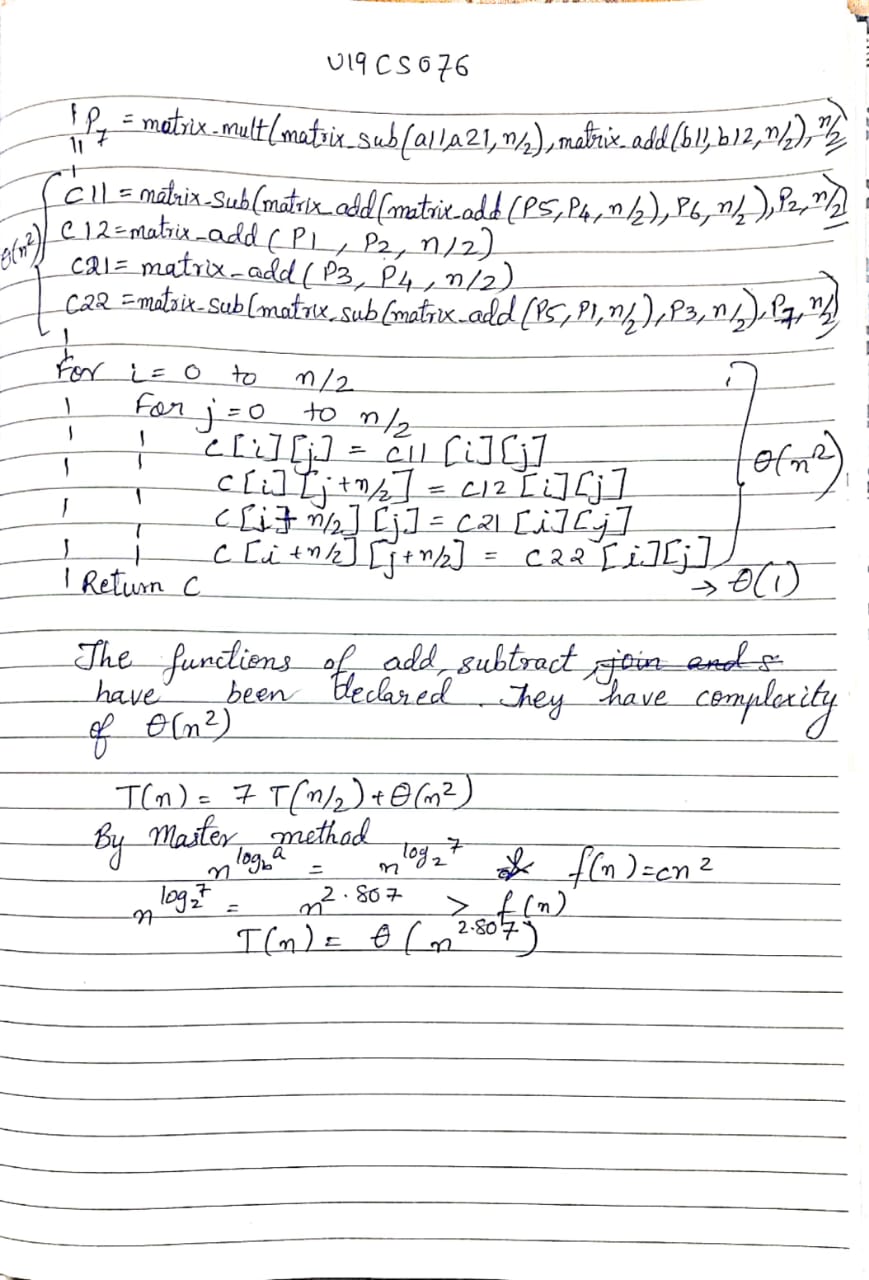 U19CS076
P7 = matrix_mult(matrix_sub(a11,a21,n/2),matrix_add(b11,b12,n/2),n/2
C11 = matrix_sub(matrix_add(matrix_add(P5,P4,n/2),P6,n/2),P2,n/2)
C12=matrix_add(P1, P2, n/2)
θ(n²)
C21= matrix_add(P3, P4, n/2)
C22 =matrix_sub(matrix_sub(matrix_add(P5,P1,n/2),P3,n/2),P7,n/2)
For i=0 to n/2
For j=0 to n/2
C[i][j] = C11[i][j]
C[i][j+n/2] = C12[i][j]
θ(n²)
C[i+n/2][j] = C21[i][j]
C[i+n/2][j+n/2] = C22[i][j]
Return C → θ(1)
The functions of add, subtract, join and s
have been declared. They have complexity
of θ(n²)
T(n) = 7 T(n/2)+θ(n²)
By Master method
n^log_b a = n^log_2 7 & f(n)=cn²
n^log_2 7 = n^2.807 > f(n)
T(n) = θ(n^2.807)